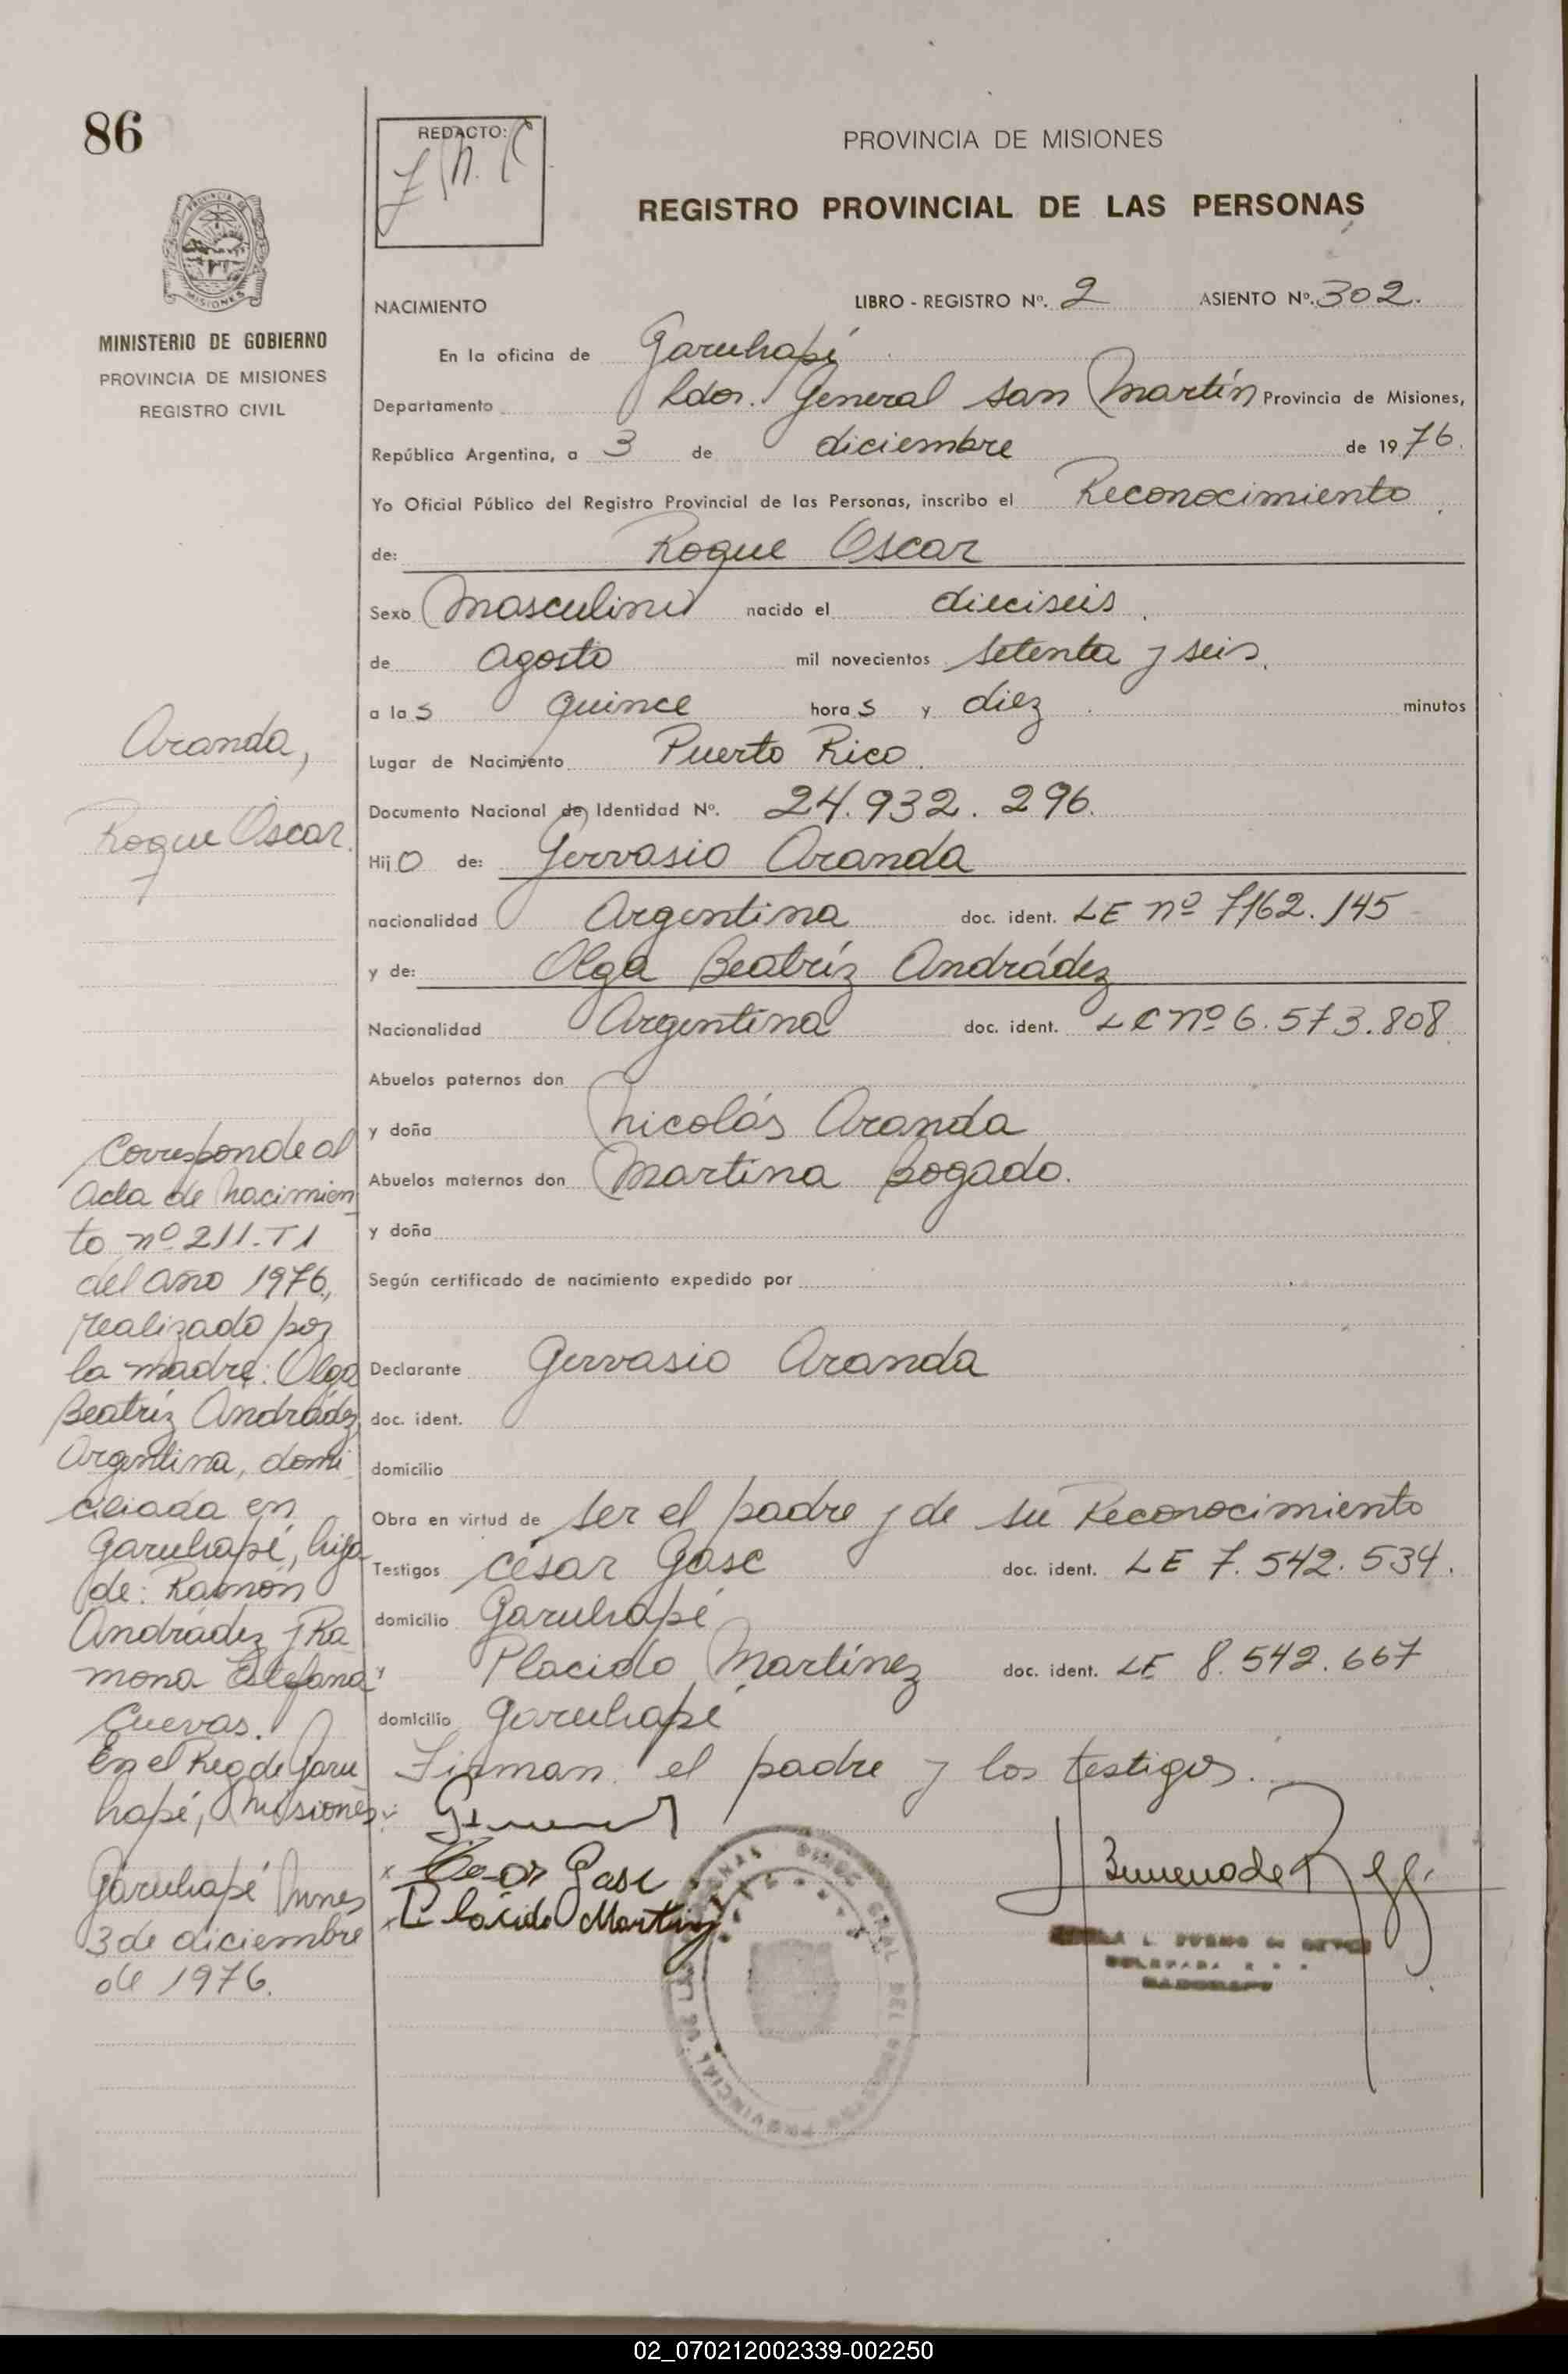 86
REDACTO:
PROVINCIA DE MISIONES
REGISTRO PROVINCIAL DE LAS PERSONAS
PROVINCIA DE
MISIONES
MINISTERIO DE GOBIERNO
PROVINCIA DE MISIONES
REGISTRO CIVIL
NACIMIENTO LIBRO - REGISTRO Nº. 2 ASIENTO Nº. 302.
En la oficina de Garuhapé
Departamento Ldor. General San Martín Provincia de Misiones,
República Argentina, a 3 de diciembre de 1976.
Yo Oficial Público del Registro Provincial de las Personas, inscribo el Reconocimiento
de: Roque Oscar
Sexo Masculino nacido el dieciseis
de Agosto mil novecientos setenta y seis.
a las quince horas y diez minutos
Lugar de Nacimiento Puerto Rico.
Documento Nacional de Identidad Nº. 24.932.296.
Hijo de: Gervasio Aranda
nacionalidad Argentina doc. ident. LE nº 7162.145
y de: Olga Beatríz Andrádez
Nacionalidad Argentina doc. ident. LC nº 6.573.808
Abuelos paternos don
y doña Nicolás Aranda
Abuelos maternos don Martina Bogado.
y doña
Según certificado de nacimiento expedido por
Declarante Gervasio Aranda
doc. ident.
domicilio
Obra en virtud de ser el padre y de su Reconocimiento
Testigos César Gasc doc. ident. LE 7.542.534.
domicilio Garuhapé
Placido Martínez doc. ident. LE 8.542.667
domicilio Garuhapé
Firman: el padre y los testigos.
Gasc
Placido Martinez
Aranda,
Roque Oscar.
Corresponde al
Acta de Nacimien
to nº 211-T1
del año 1976,
realizado por
la madre: Olga
Beatríz Andrádez,
Argentina, domi
ciliada en
Garuhapé, hija
de: Ramón
Andrádez y Ra
mona Estefana
Cuevas.
En el Reg de Garu
hapé, Misiones
Garuhapé Mnes
3 de diciembre
de 1976.
02_070212002339-002250